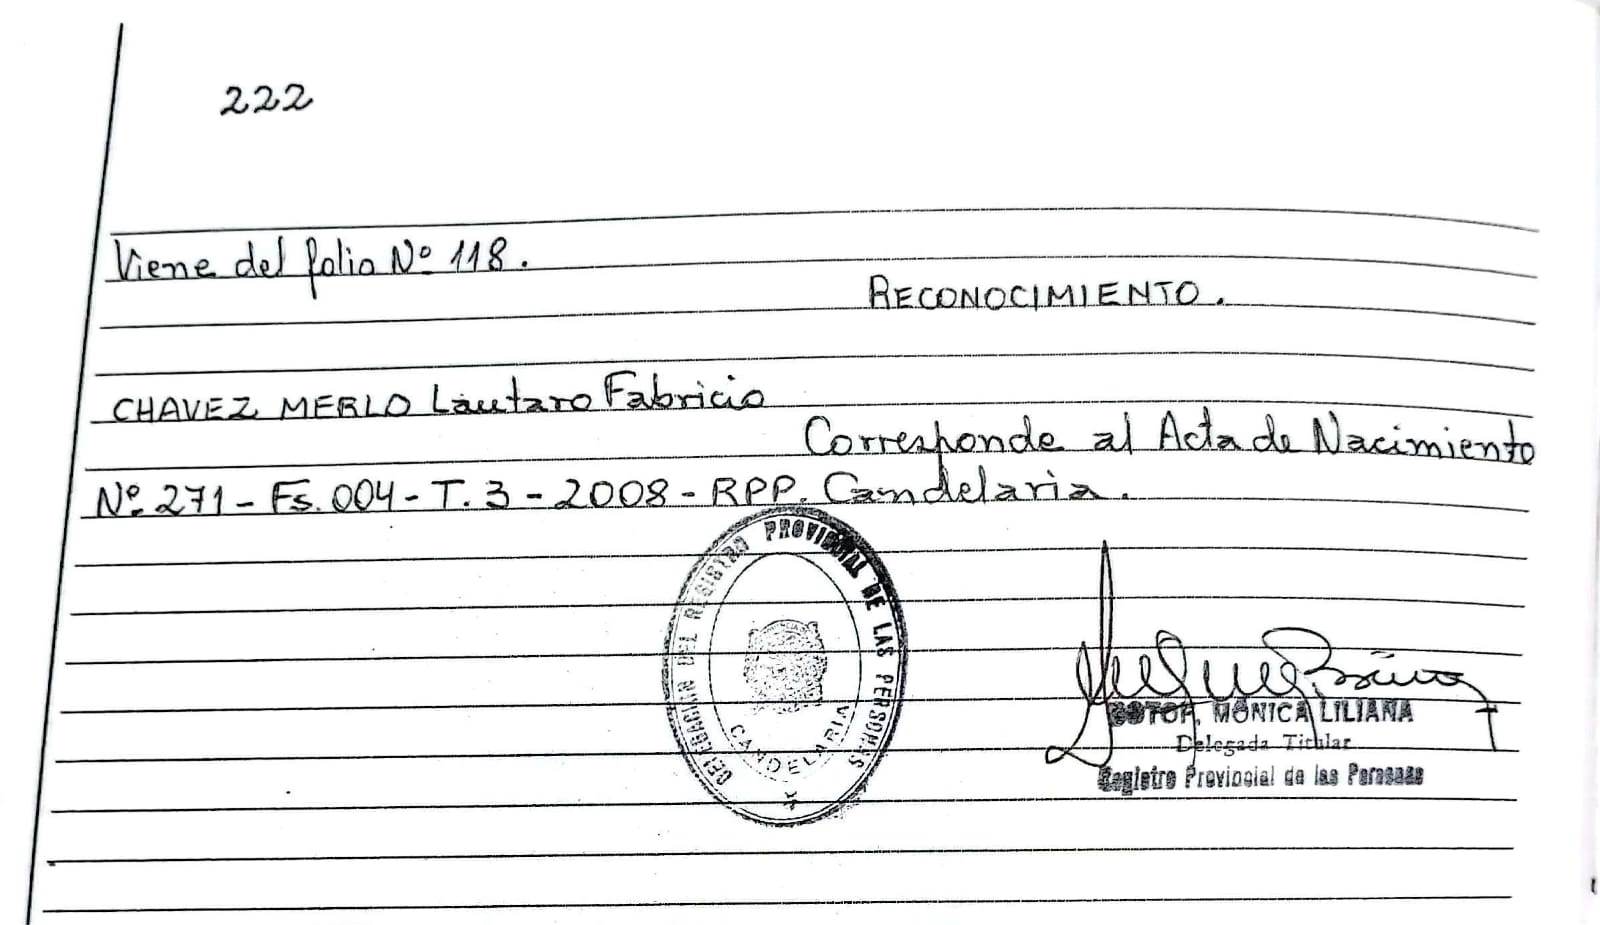 222
Viene del folio Nº 118.
RECONOCIMIENTO.
CHAVEZ MERLO Lautaro Fabricio
Corresponde al Acta de Nacimiento
Nº 271 - Fs. 004 - T. 3 - 2008 - RPP. Candelaria.
DELEGACION DEL REGISTRO PROVINCIAL DE LAS PERSONAS
CANDELARIA
MONICA LILIANA
Delegada Titular
Registro Provincial de las Personas